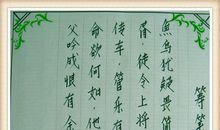 筹笔
魚鸟犹疑畏简
胥，徒令上将
传车。管乐有
命欲何如。他
父吟成恨有余